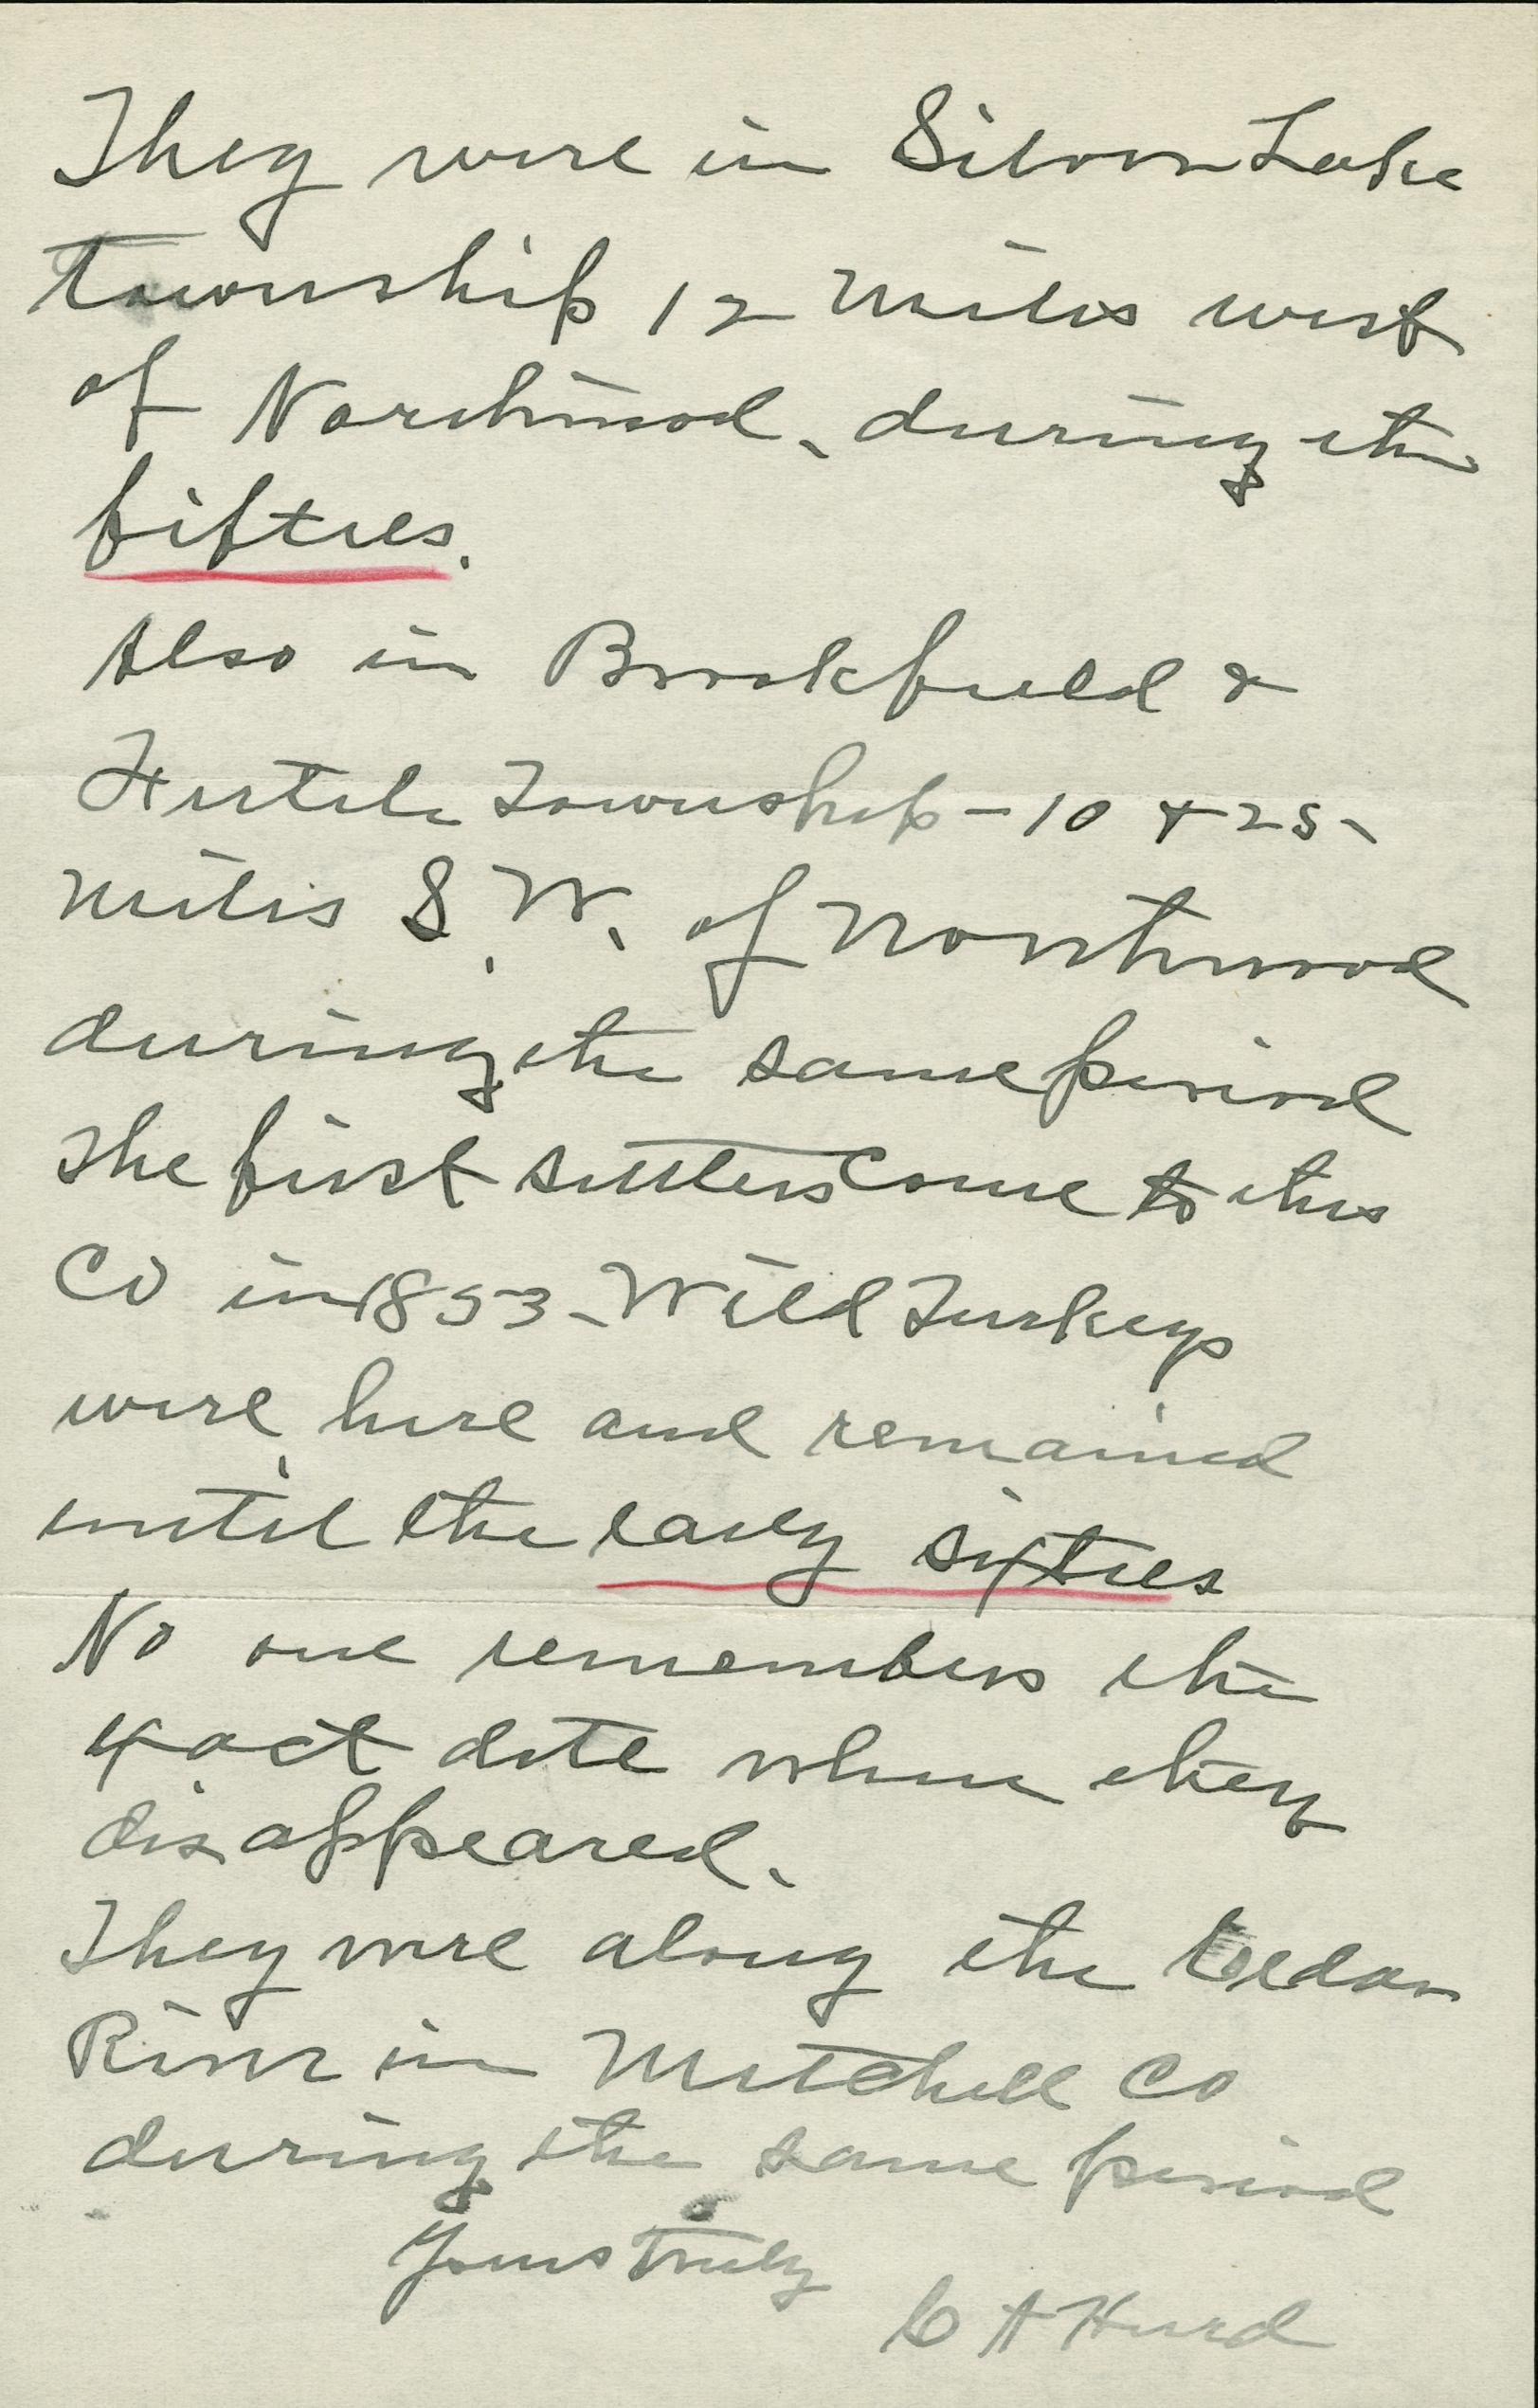 They were in Silver Lake
township 12 miles west
of Northwood, during the
fifties.
Also in Brookfield &
Fertile Township - 10 & 25
miles S.W. of Northwood
during the same period
The first settlers come to this
Co in 1853 - Wild Turkeys
were here and remained
until the early sixties
No one remembers the
exact date when they
disappeared.
They were along the Cedar
River in Mitchell Co
during the same period
Yours truly
C A Hurd